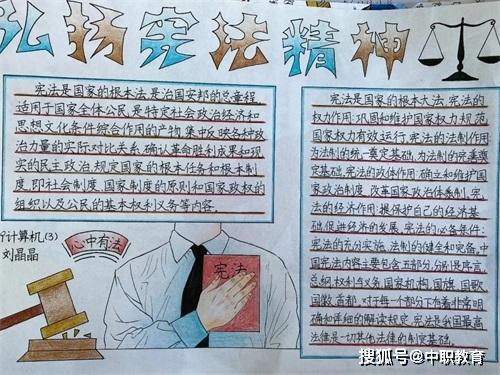 弘扬宪法精神
宪法是国家的根本法,是治国安邦的总章程,
适用于国家全体公民,是特定社会政治经济和
思想文化条件综合作用的产物,集中反映各种政
治力量的实际对比关系,确认革命胜利成果和现
实的民主政治,规定国家的根本任务和根本制
度,即社会制度、国家制度的原则和国家政权的
组织以及公民的基本权利义务等内容。
计算机(3)
刘晶晶
心中有法
宪法
宪法是国家的根本大法,宪法的
权力作用:巩固和维护国家权力,规范
国家权力有效运行,宪法的法制作用
为法制的统一奠定基础,为法制的完善奠
定基础,宪法的政体作用:确立和维护国
家政治制度,改革国家政治体系制,宪
法的经济作用:提保护自己的经济基
础促进经济的发展,宪法的必备条件:
宪法的充分实施,法制的健全和完备,中
国宪法内容主要包含五部分,分别是序言,
总纲,权利与义务,国家机构,国旗、国歌
国徽、首都,对于每个部分下有着非常明
确和详细的解读规定,宪法是我国最高
法律是一切其他法律的制定基础。
搜狐号@中职教育